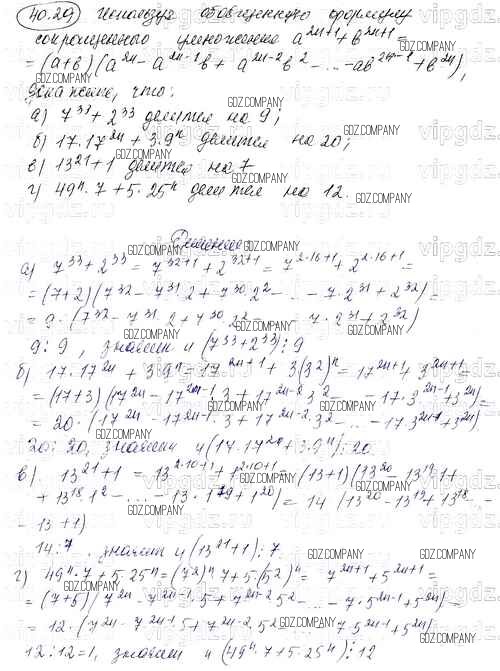 40.29 Используя обобщенную формулу
сокращенного умножения a²ⁿ⁺¹+b²ⁿ⁺¹=
=(a+b)(a²ⁿ-a²ⁿ⁻¹b+a²ⁿ⁻²b²-...-ab²ⁿ⁻¹+b²ⁿ),
докажите, что:
а) 7³³+2³³ делится на 9;
б) 17·17²ⁿ+3·9ⁿ делится на 20;
в) 13²¹+1 делится на 7
г) 49ⁿ·7+5·25ⁿ делится на 12.
Решение:
а) 7³³+2³³=7³²⁺¹+2³²⁺¹=7²·¹⁶⁺¹+2²·¹⁶⁺¹=
=(7+2)(7³²-7³¹·2+7³⁰·2²-...-7·2³¹+2³²)=
=9·(7³²-7³¹·2+7³⁰·2²-...-7·2³¹+2³²)
9⋮9, значит и (7³³+2³³)⋮9
б) 17·17²ⁿ+3·9ⁿ=17²ⁿ⁺¹+3(3²)ⁿ=17²ⁿ⁺¹+3²ⁿ⁺¹=
=(17+3)(17²ⁿ-17²ⁿ⁻¹·3+17²ⁿ⁻²·3²-...-17·3²ⁿ⁻¹+3²ⁿ)=
=20·(17²ⁿ-17²ⁿ⁻¹·3+17²ⁿ⁻²·3²-...-17·3²ⁿ⁻¹+3²ⁿ)
20⋮20, значит и (17·17²ⁿ+3·9ⁿ)⋮20
в) 13²¹+1=13²·¹⁰⁺¹+1²·¹⁰⁺¹=(13+1)(13²⁰-13¹⁹·1+
+13¹⁸·1²-...-13·1¹⁹+1²⁰)=14(13²⁰-13¹⁹+13¹⁸-...-
-13+1)
14⋮7, значит и (13²¹+1)⋮7
г) 49ⁿ·7+5·25ⁿ=(7²)ⁿ·7+5·(5²)ⁿ=7²ⁿ⁺¹+5²ⁿ⁺¹=
=(7+5)(7²ⁿ-7²ⁿ⁻¹·5+7²ⁿ⁻²·5²-...-7·5²ⁿ⁻¹+5²ⁿ)=
=12·(7²ⁿ-7²ⁿ⁻¹·5+7²ⁿ⁻²·5²-...-7·5²ⁿ⁻¹+5²ⁿ)
12:12=1, значит и (49ⁿ·7+5·25ⁿ)⋮12
GDZ.COMPANY
vipgdz.ru